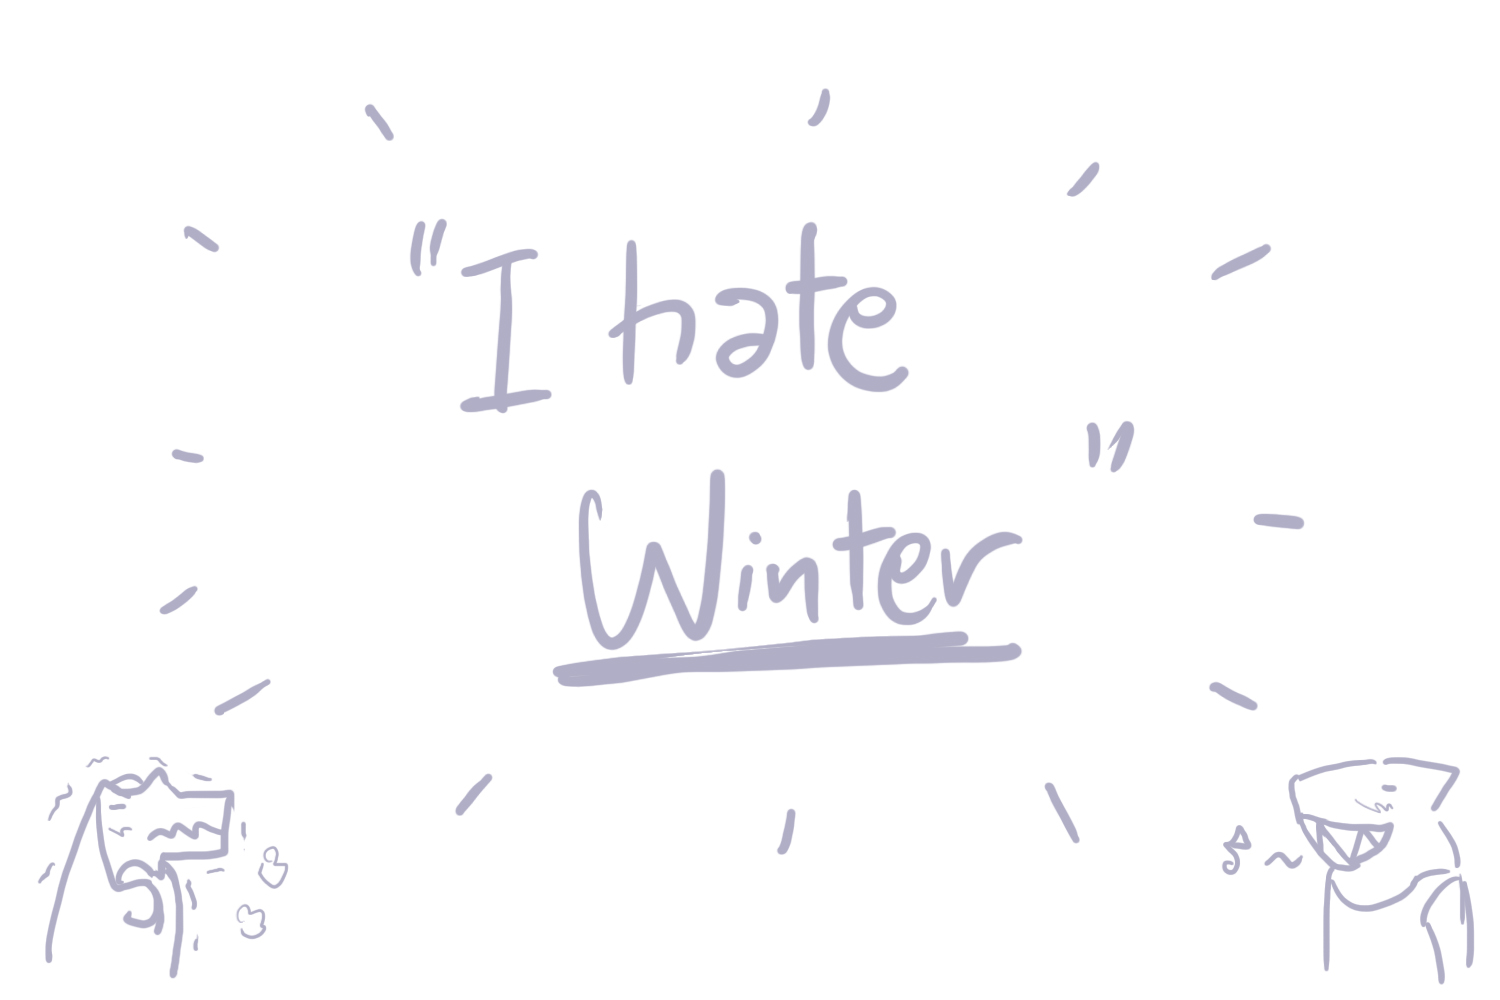 "I hate
Winter"